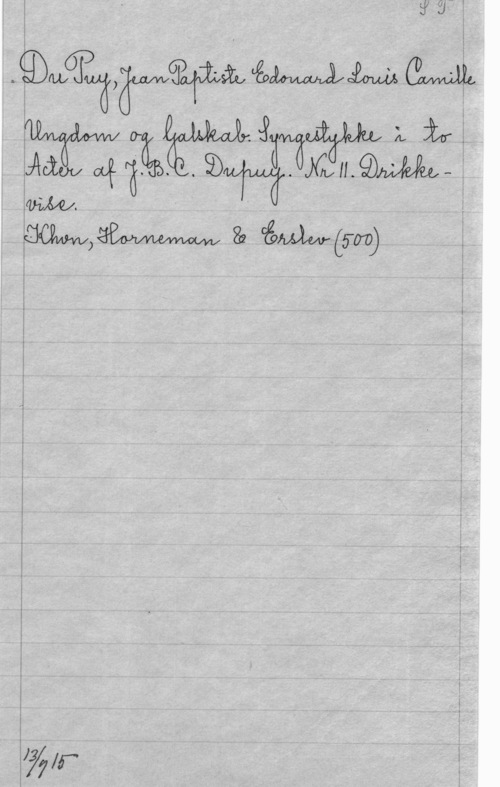 Du Puy, Jean Baptiste Edouard Louis Camille
Ungdom og Galskab. Syngestykke i to
Acter af J. B. C. Dupuy. Nr 11. Drikke-
vise.
Khvn, Horneman & Erslev (500)
13/7 15